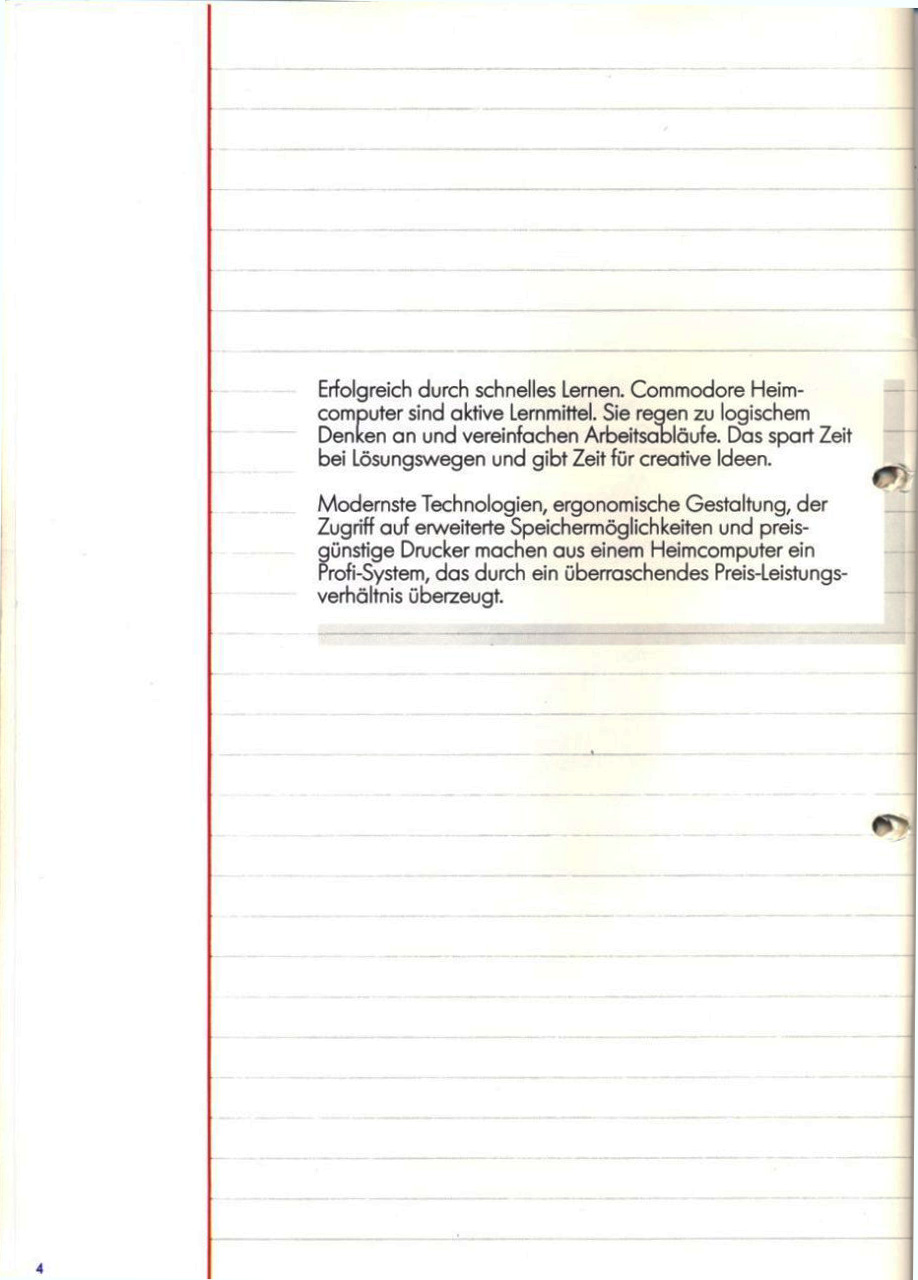 Erfolgreich durch schnelles Lernen. Commodore Heim-
computer sind aktive Lernmittel. Sie regen zu logischem
Denken an und vereinfachen Arbeitsabläufe. Das spart Zeit
bei Lösungswegen und gibt Zeit für creative Ideen.
Modernste Technologien, ergonomische Gestaltung, der
Zugriff auf erweiterte Speichermöglichkeiten und preis-
günstige Drucker machen aus einem Heimcomputer ein
Profi-System, das durch ein überraschendes Preis-Leistungs-
verhältnis überzeugt.
4